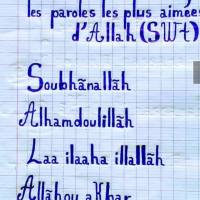 les paroles les plus aimées
d'Allah (SWT)
Soubhãnallãh
Alhamdoulillãh
Laa ilaaha illallãh
Allãhou akbar